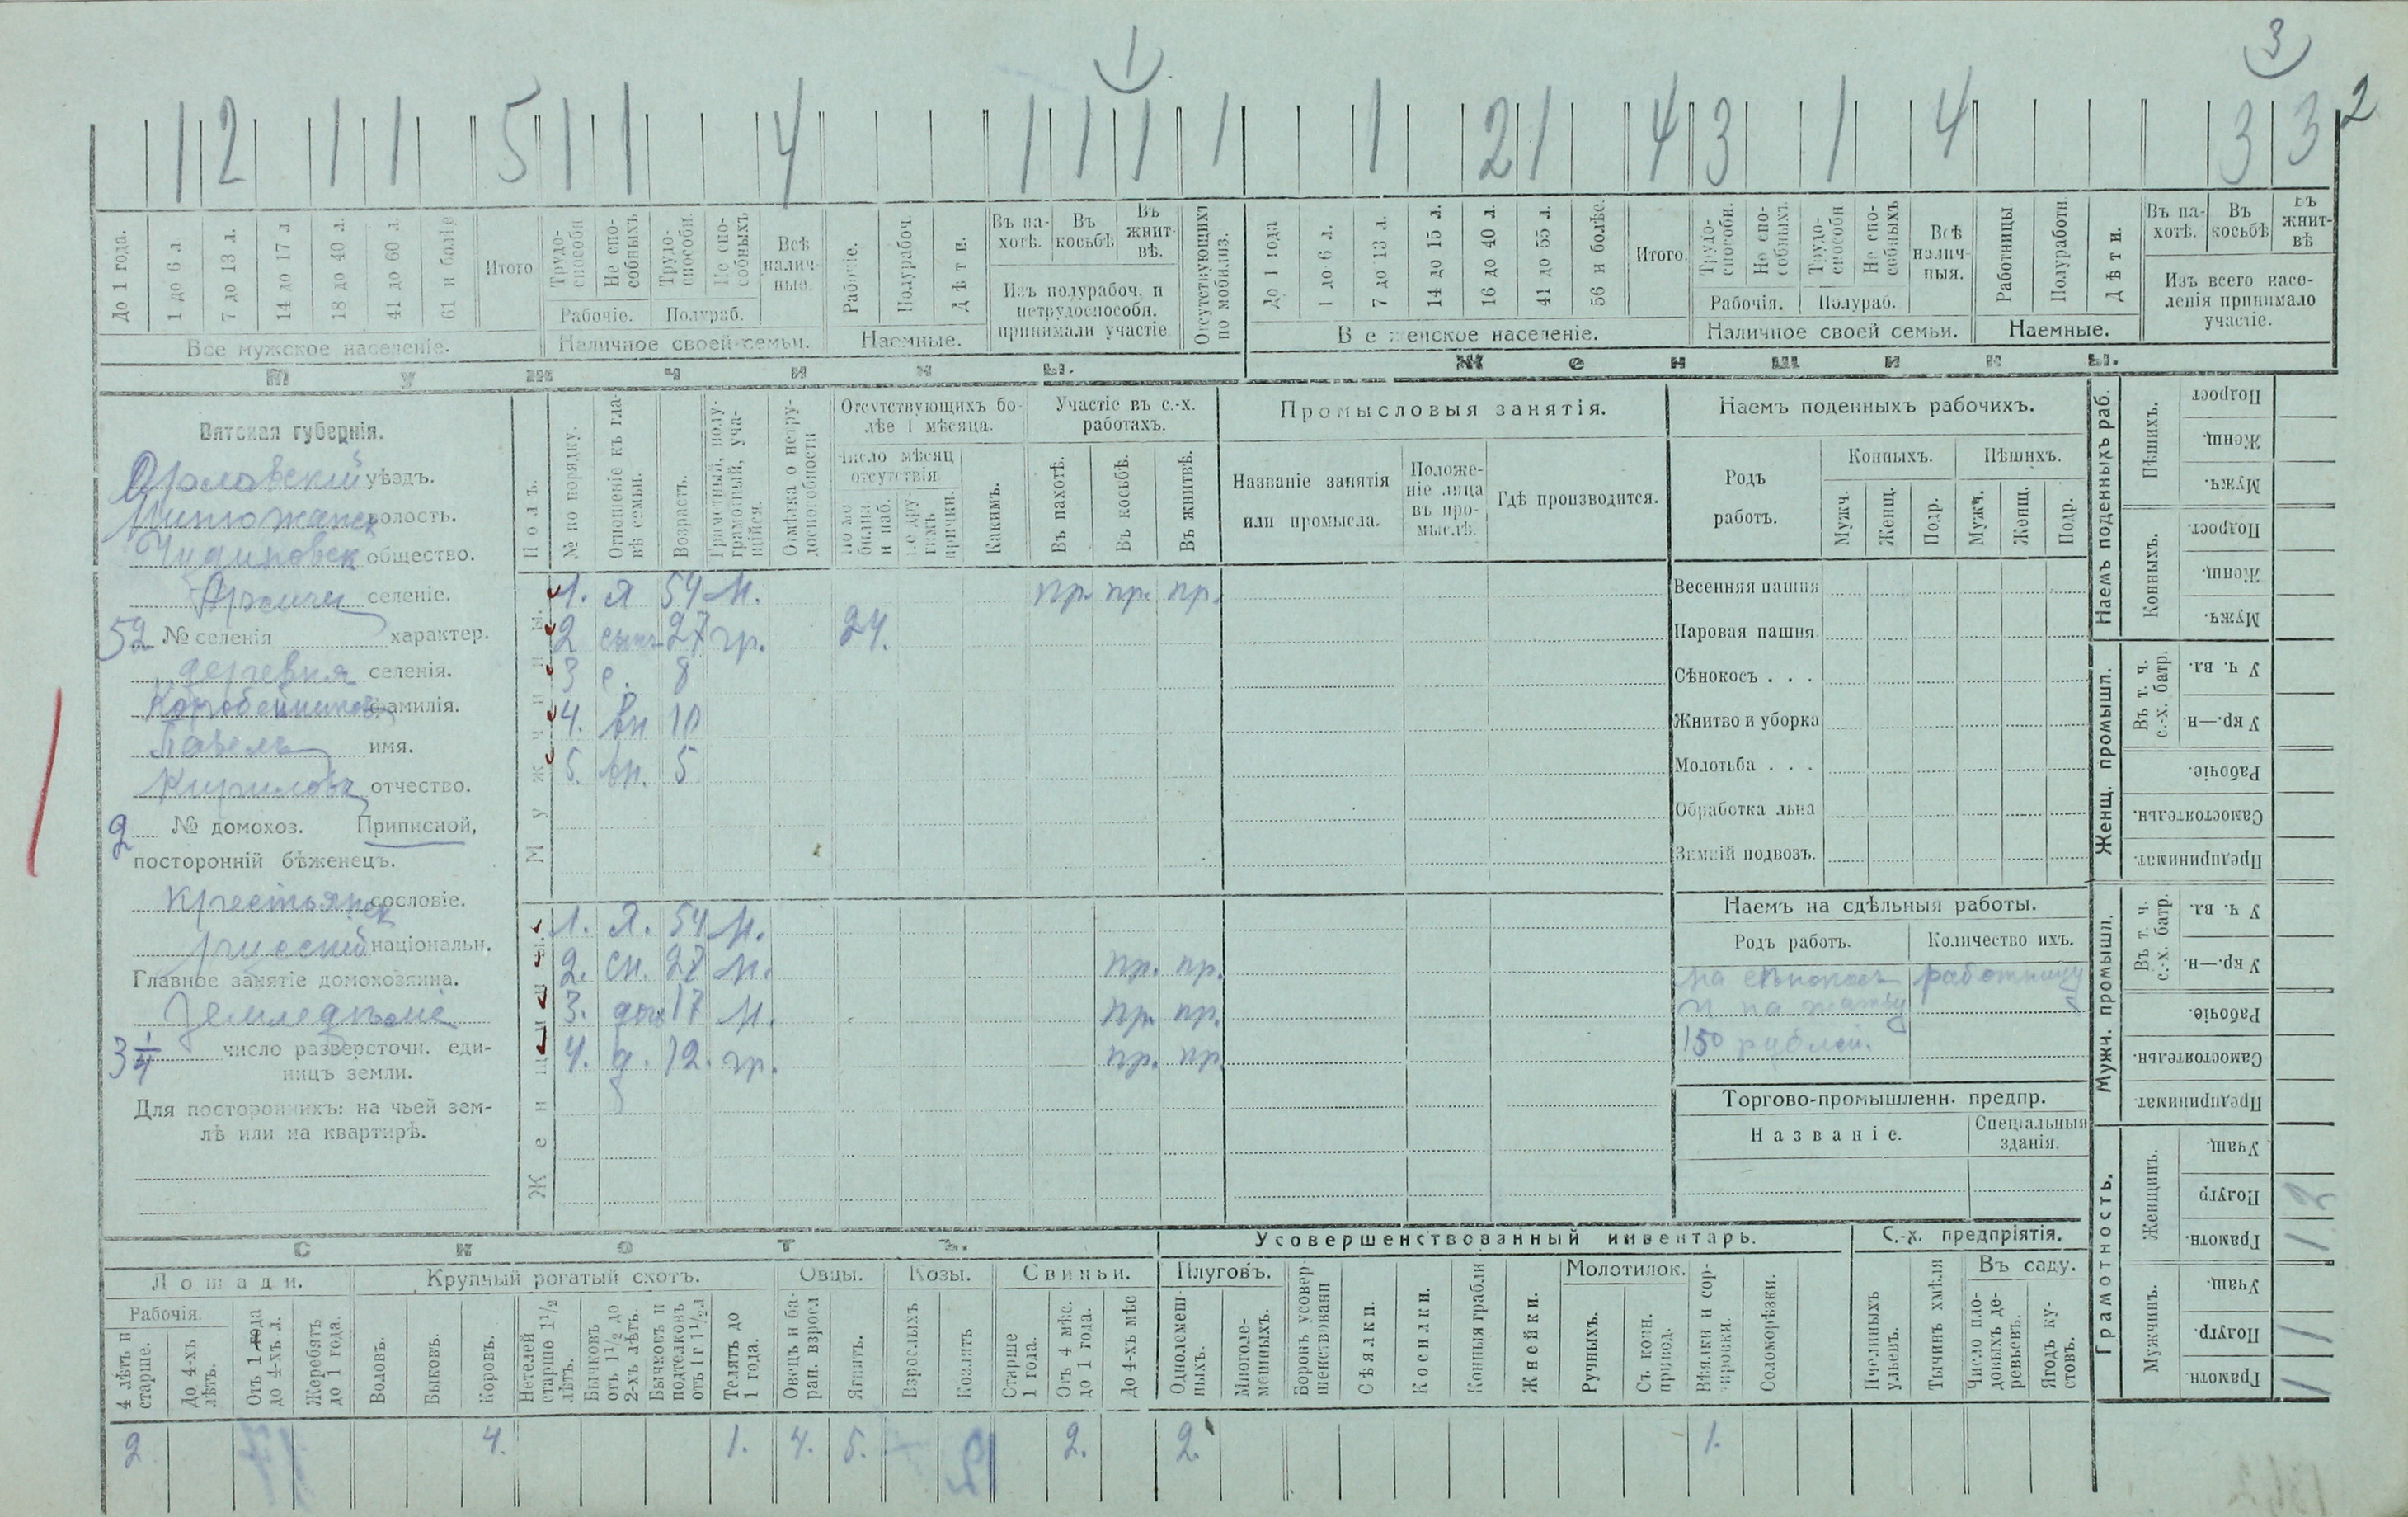 1
3
1 2 1 1 5 1 1 4 1 1 1 1 1 2 1 4 3 1 4 3 3 2
До 1 года.
1 до 6 л
7 до 13 л.
14 до 17 л
18 до 40 л.
41 до 60 л.
61 и болѣе
Итого
Трудоспособн
Не способныхъ
Трудоспособн.
Не способныхъ
Рабочіе. Полураб.
Всѣ наличные.
Рабочіе.
Полурабоч.
Дѣти.
Въ пахотѣ.
Въ косьбѣ
Въ жнитвѣ.
Изъ полурабоч. и
нетрудоспособн.
принимали участіе
Отсутствующихъ
по мобилиз.
До 1 года
1 до 6 л.
7 до 13 л.
14 до 15 л.
16 до 40 л.
41 до 55 л.
56 и болѣе.
Итого.
Трудоспособн.
Не способныхъ
Трудоспособн
Не способныхъ
Рабочія. Полураб.
Всѣ наличныя.
Работницы
Полуработн.
Дѣти.
Въ пахотѣ.
Въ косьбѣ
Въ жнитвѣ
Изъ всего населенія принимало
участіе.
Все мужское населеніе. Наличное своей семьи. Наемные.
Все женское населеніе. Наличное своей семьи. Наемные.
Мужчины. Женщины.
Вятская губернія.
Орловскій уѣздъ.
волость.
общество.
селеніе.
52 № селенія характер.
деревня селенія.
Коробейниковъ фамилія.
Павелъ имя.
Кириловъ отчество.
2 № домохоз. Приписной,
посторонній бѣженецъ.
крестьянск сословіе.
русскій національн.
Главное занятіе домохозяина.
Земледѣліе
3 1/4 число разверсточн. единицъ земли.
Для постороннихъ: на чьей землѣ или на квартирѣ.
Полъ.
№ по порядку.
Отношеніе къ главѣ семьи.
Возрастъ.
Грамотный, полуграмотный, учащійся.
Отмѣтка о нетрудоспособности
Отсутствующихъ болѣе 1 мѣсяца.
Число мѣсяц отсутствія
По мобилиз. и наб.
По другимъ причин.
Какимъ.
Участіе въ с.-х. работахъ.
Въ пахотѣ.
Въ косьбѣ.
Въ жнитвѣ.
Промысловыя занятія.
Названіе занятія или промысла.
Положеніе лица въ промыслѣ.
Гдѣ производится.
Мужчины.
1. я 54 н. пр. пр. пр.
2 сынъ 27 гр. 24.
3 с. 8
4. вн 10
5. вн. 5
Женщины.
1. я. 54 н.
2. сн. 27 н. пр. пр.
3. доч 17 н. пр. пр.
4. д. 12. гр. пр. пр.
Наемъ поденныхъ рабочихъ.
Родъ работъ.
Конныхъ. Пѣшихъ.
Мужч. Женщ. Подр. Мужч. Женщ. Подр.
Весенняя пашня
Паровая пашня.
Сѣнокосъ . . .
Жнитво и уборка
Молотьба . . .
Обработка льна
Зимній подвозъ.
Наемъ на сдѣльныя работы.
Родъ работъ. Количество ихъ.
на сѣнокосъ работницу
и на жатву
150 рублей.
Торгово-промышленн. предпр.
Названіе. Спеціальныя зданія.
Наемъ поденныхъ раб.
Пѣшихъ. Подрост Женщ. Мужч.
Конныхъ. Подрост. Женщ. Мужч.
Женщ. промышл.
Въ т. ч. с.-х. батр. У ч. вл. У кр.—н.
Рабочіе.
Самостоятельн.
Предпринимат.
Мужч. промышл.
Въ т. ч. с.-х. батр. У ч. вл. У кр.—н.
Рабочіе.
Самостоятельн.
Предпринимат.
Грамотность.
Женщинъ. Учащ. Полугр 2 Грамотн. 1
Мужчинъ. Учащ. Полугр. 1 Грамотн. 1
Скотъ.
Лошади.
Рабочія.
4 лѣтъ и старше.
До 4-хъ лѣтъ.
Отъ 1 года до 4-хъ л.
Жеребятъ до 1 года.
Крупный рогатый скотъ.
Воловъ.
Быковъ.
Коровъ.
Нетелей старше 1 1/2 лѣтъ.
Бычковъ отъ 1 1/2 до 2-хъ лѣтъ.
Бычковъ и подтелковъ отъ 1 г 1 1/2 л
Телятъ до 1 года.
Овцы.
Овецъ и баран. взросл
Ягнятъ.
Козы.
Взрослыхъ
Козлятъ.
Свиньи.
Старше 1 года.
Отъ 4 мѣс. до 1 года.
До 4-хъ мѣс
Усовершенствованный инвентарь.
Плуговъ.
Однолемешныхъ.
Многолемешныхъ.
Боронъ усовершенствованн
Сѣялки.
Косилки.
Конныя грабли
Жнейки.
Молотилок.
Ручныхъ.
Съ конн. привод.
Вѣялки и сортировки.
Соломорѣзки.
С.-х. предпріятія.
Пчелиныхъ ульевъ.
Тычинъ хмѣля
Въ саду.
Число плодовыхъ деревьевъ.
Ягодъ кустовъ.
2 4. 1. 4. 5. 2. 2. 1.